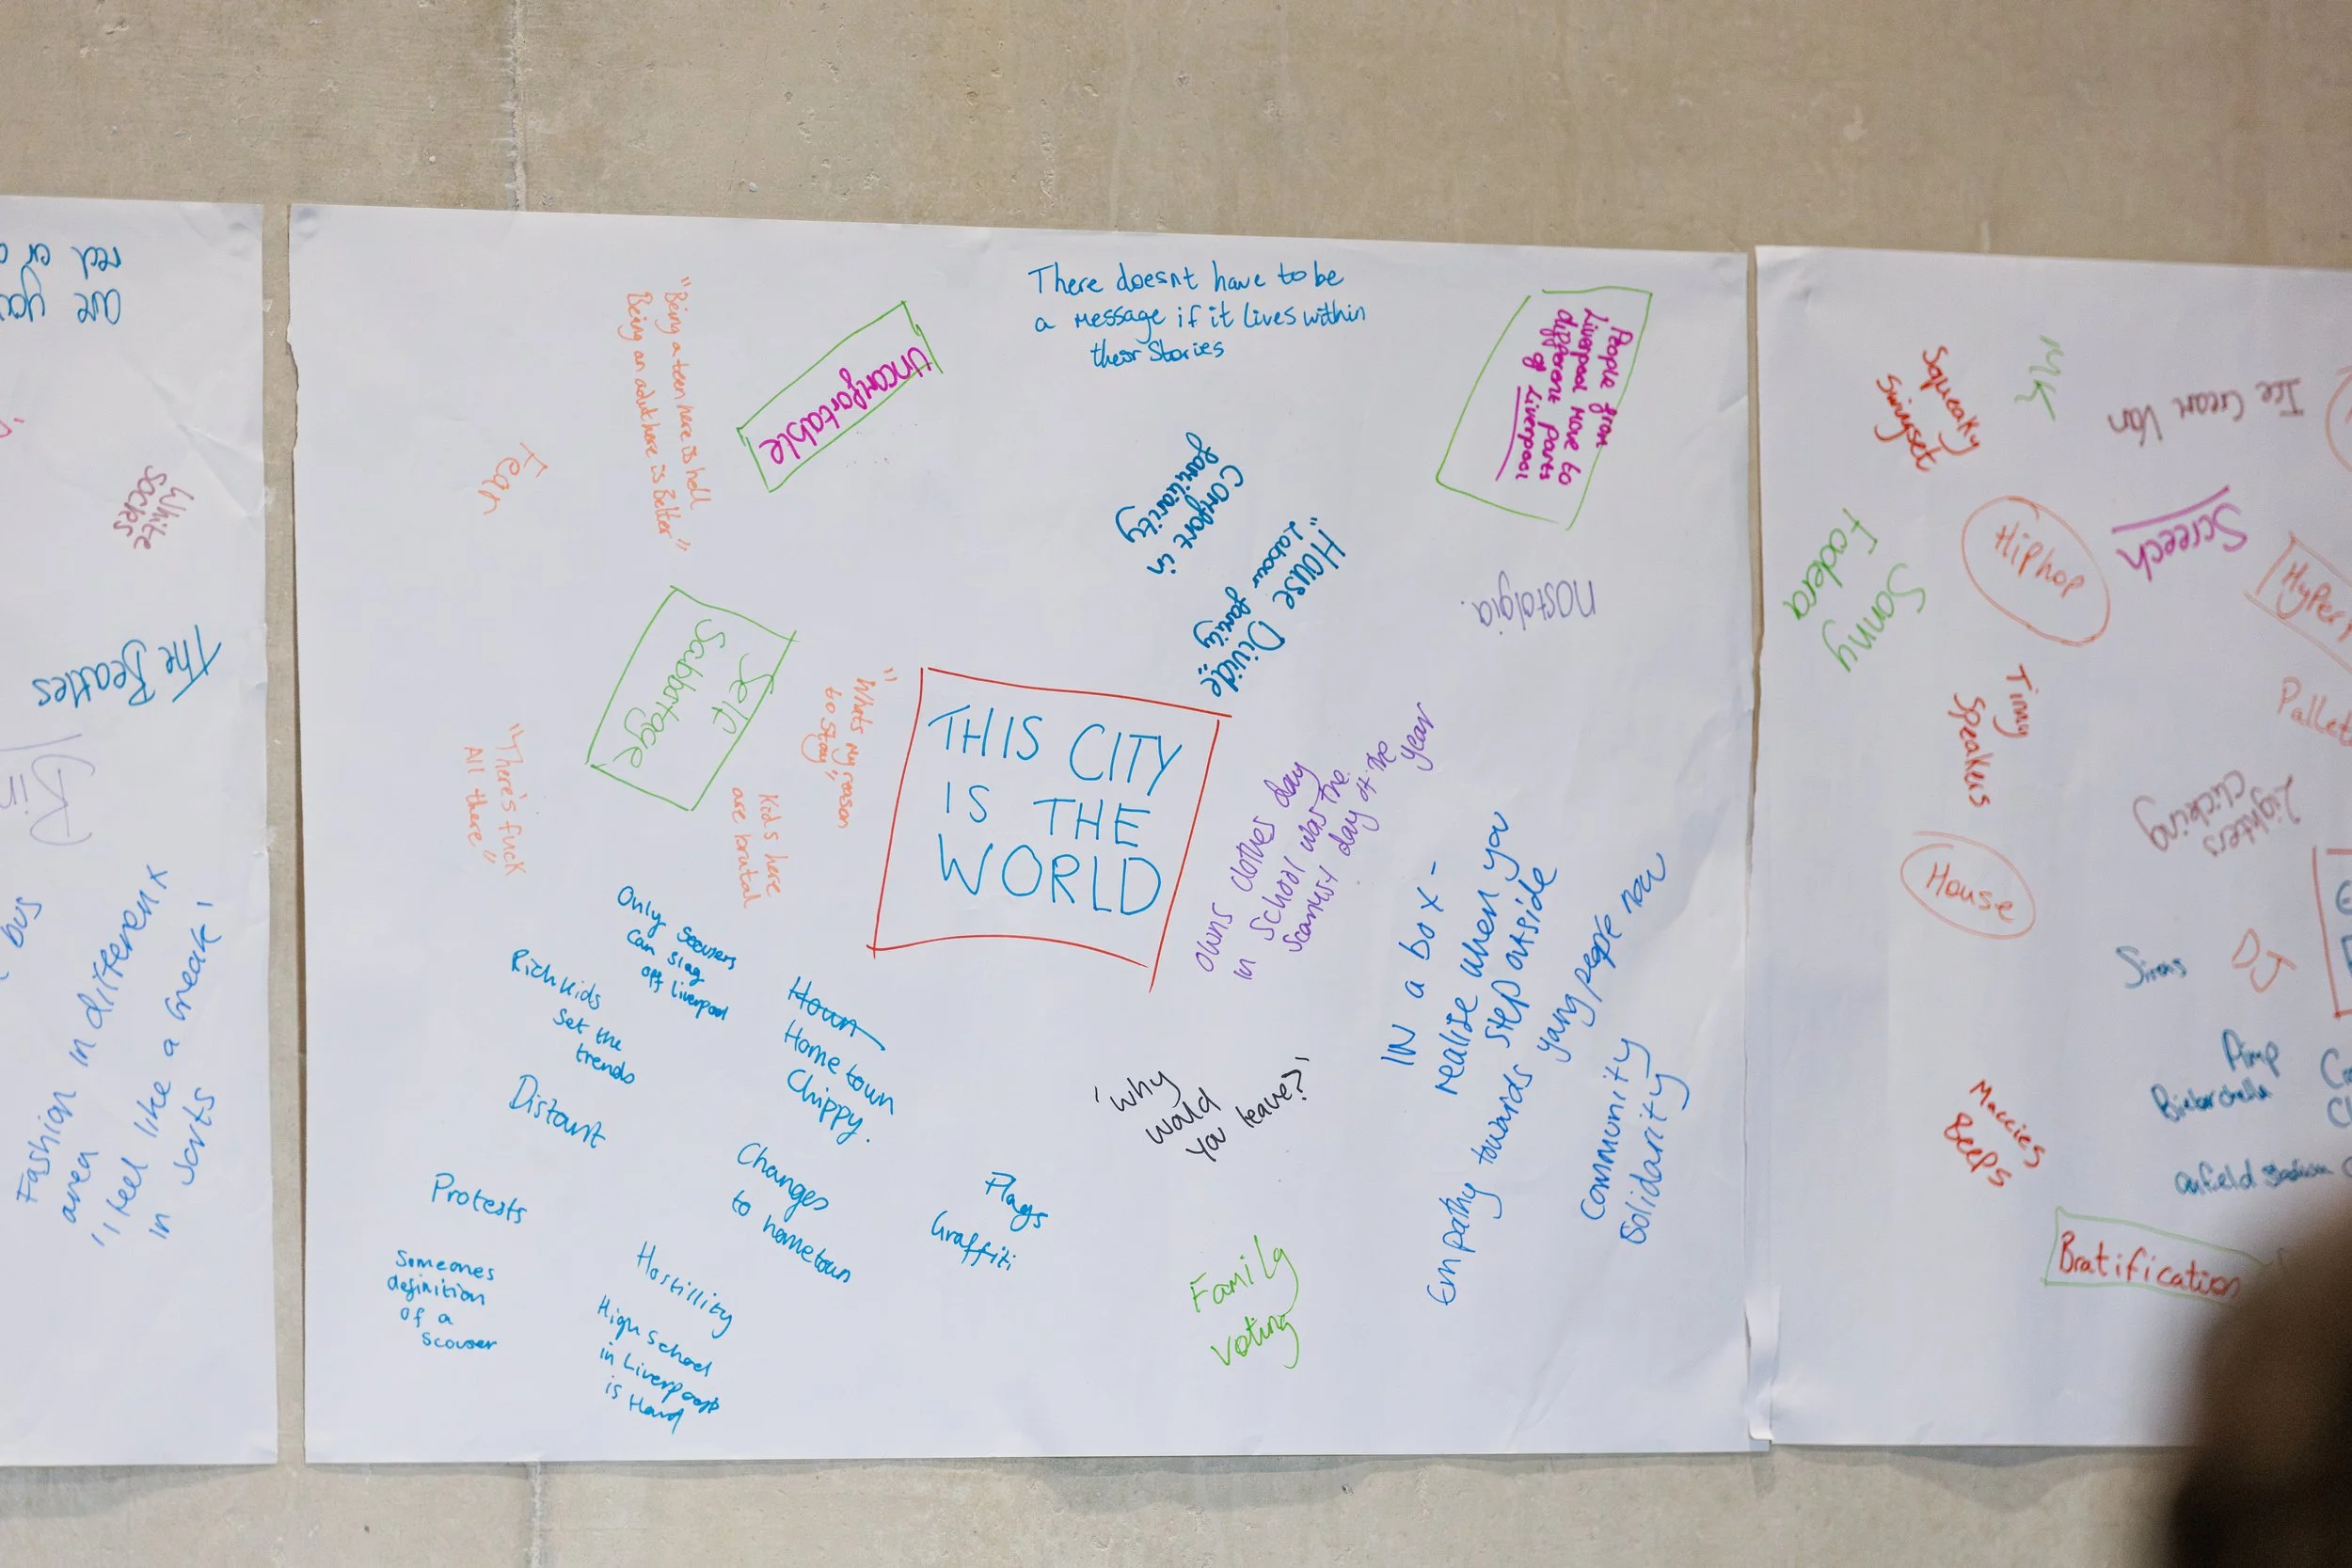 The Beatles
White
socks
bus
Fashion in different
area
"I feel like a freak"
in sorts
There doesnt have to be
a message if it lives within
their Stories
"Being a teen here is hell
Being an adult here is Better"
Uncomfortable
Fear
People from
Liverpool move to
different parts
of Liverpool
Comfort in
familiarity
"House Divide"
Labour family
nostalgia.
Self
Sabbortage
"Whats my reason
to stay"
"There's fuck
All there"
Kids here
are brutal
THIS CITY
IS THE
WORLD
owns clothes day
in school was the
scariest day of the
year
Only scousers
can slag
off Liverpool
Rich kids
set the
trends
Distant
Home town
Chippy.
Protests
Changes
to hometown
Flags
Graffiti
Someones
definition
of a
scouser
Hostillity
High school
in Liverpool
is Hard
'Why
would
you leave?'
IN a box -
realise when you
step outside
Empathy towards young people now
Community
Solidarity
Family
Voting
Squeaky
Swingset
MK
Ice Cream Van
Sonny
Fodera
Hiphop
Screech
Tinny
Speakers
Lighters
clicking
House
Sirens
DJ
Pimp
Maccies
Beeps
anfield stadium
Bratification